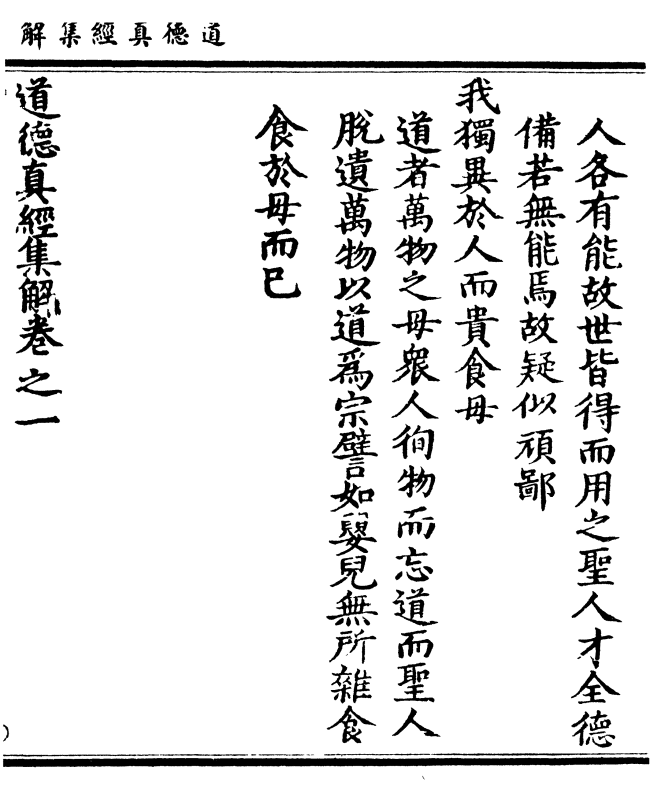 道德真經集解
人各有能故世皆得而用之聖人才全德
備若無能焉故疑似頑鄙
我獨異於人而貴食母
道者萬物之母衆人徇物而忘道而聖人
脫遺萬物以道爲宗譬如嬰兒無所雜食
食於母而已
道德真經集解卷之一